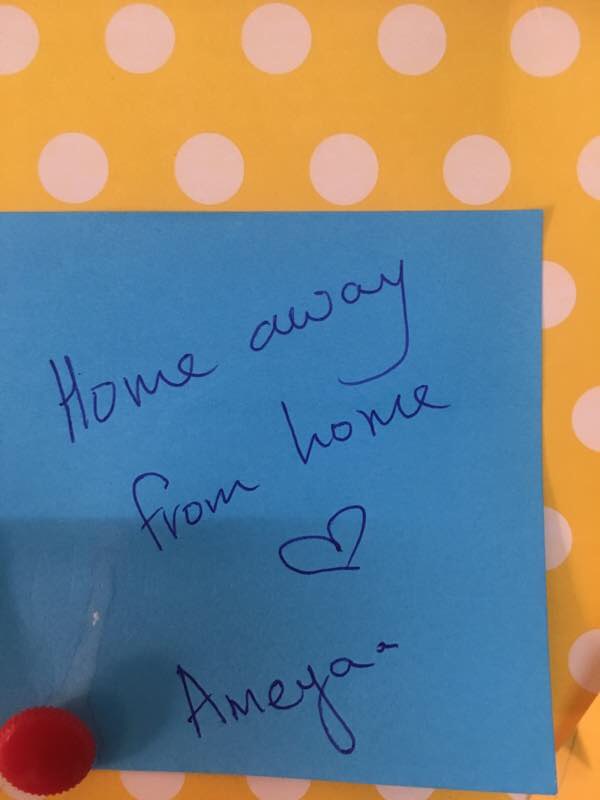 Home away
from home
♡
Ameya-